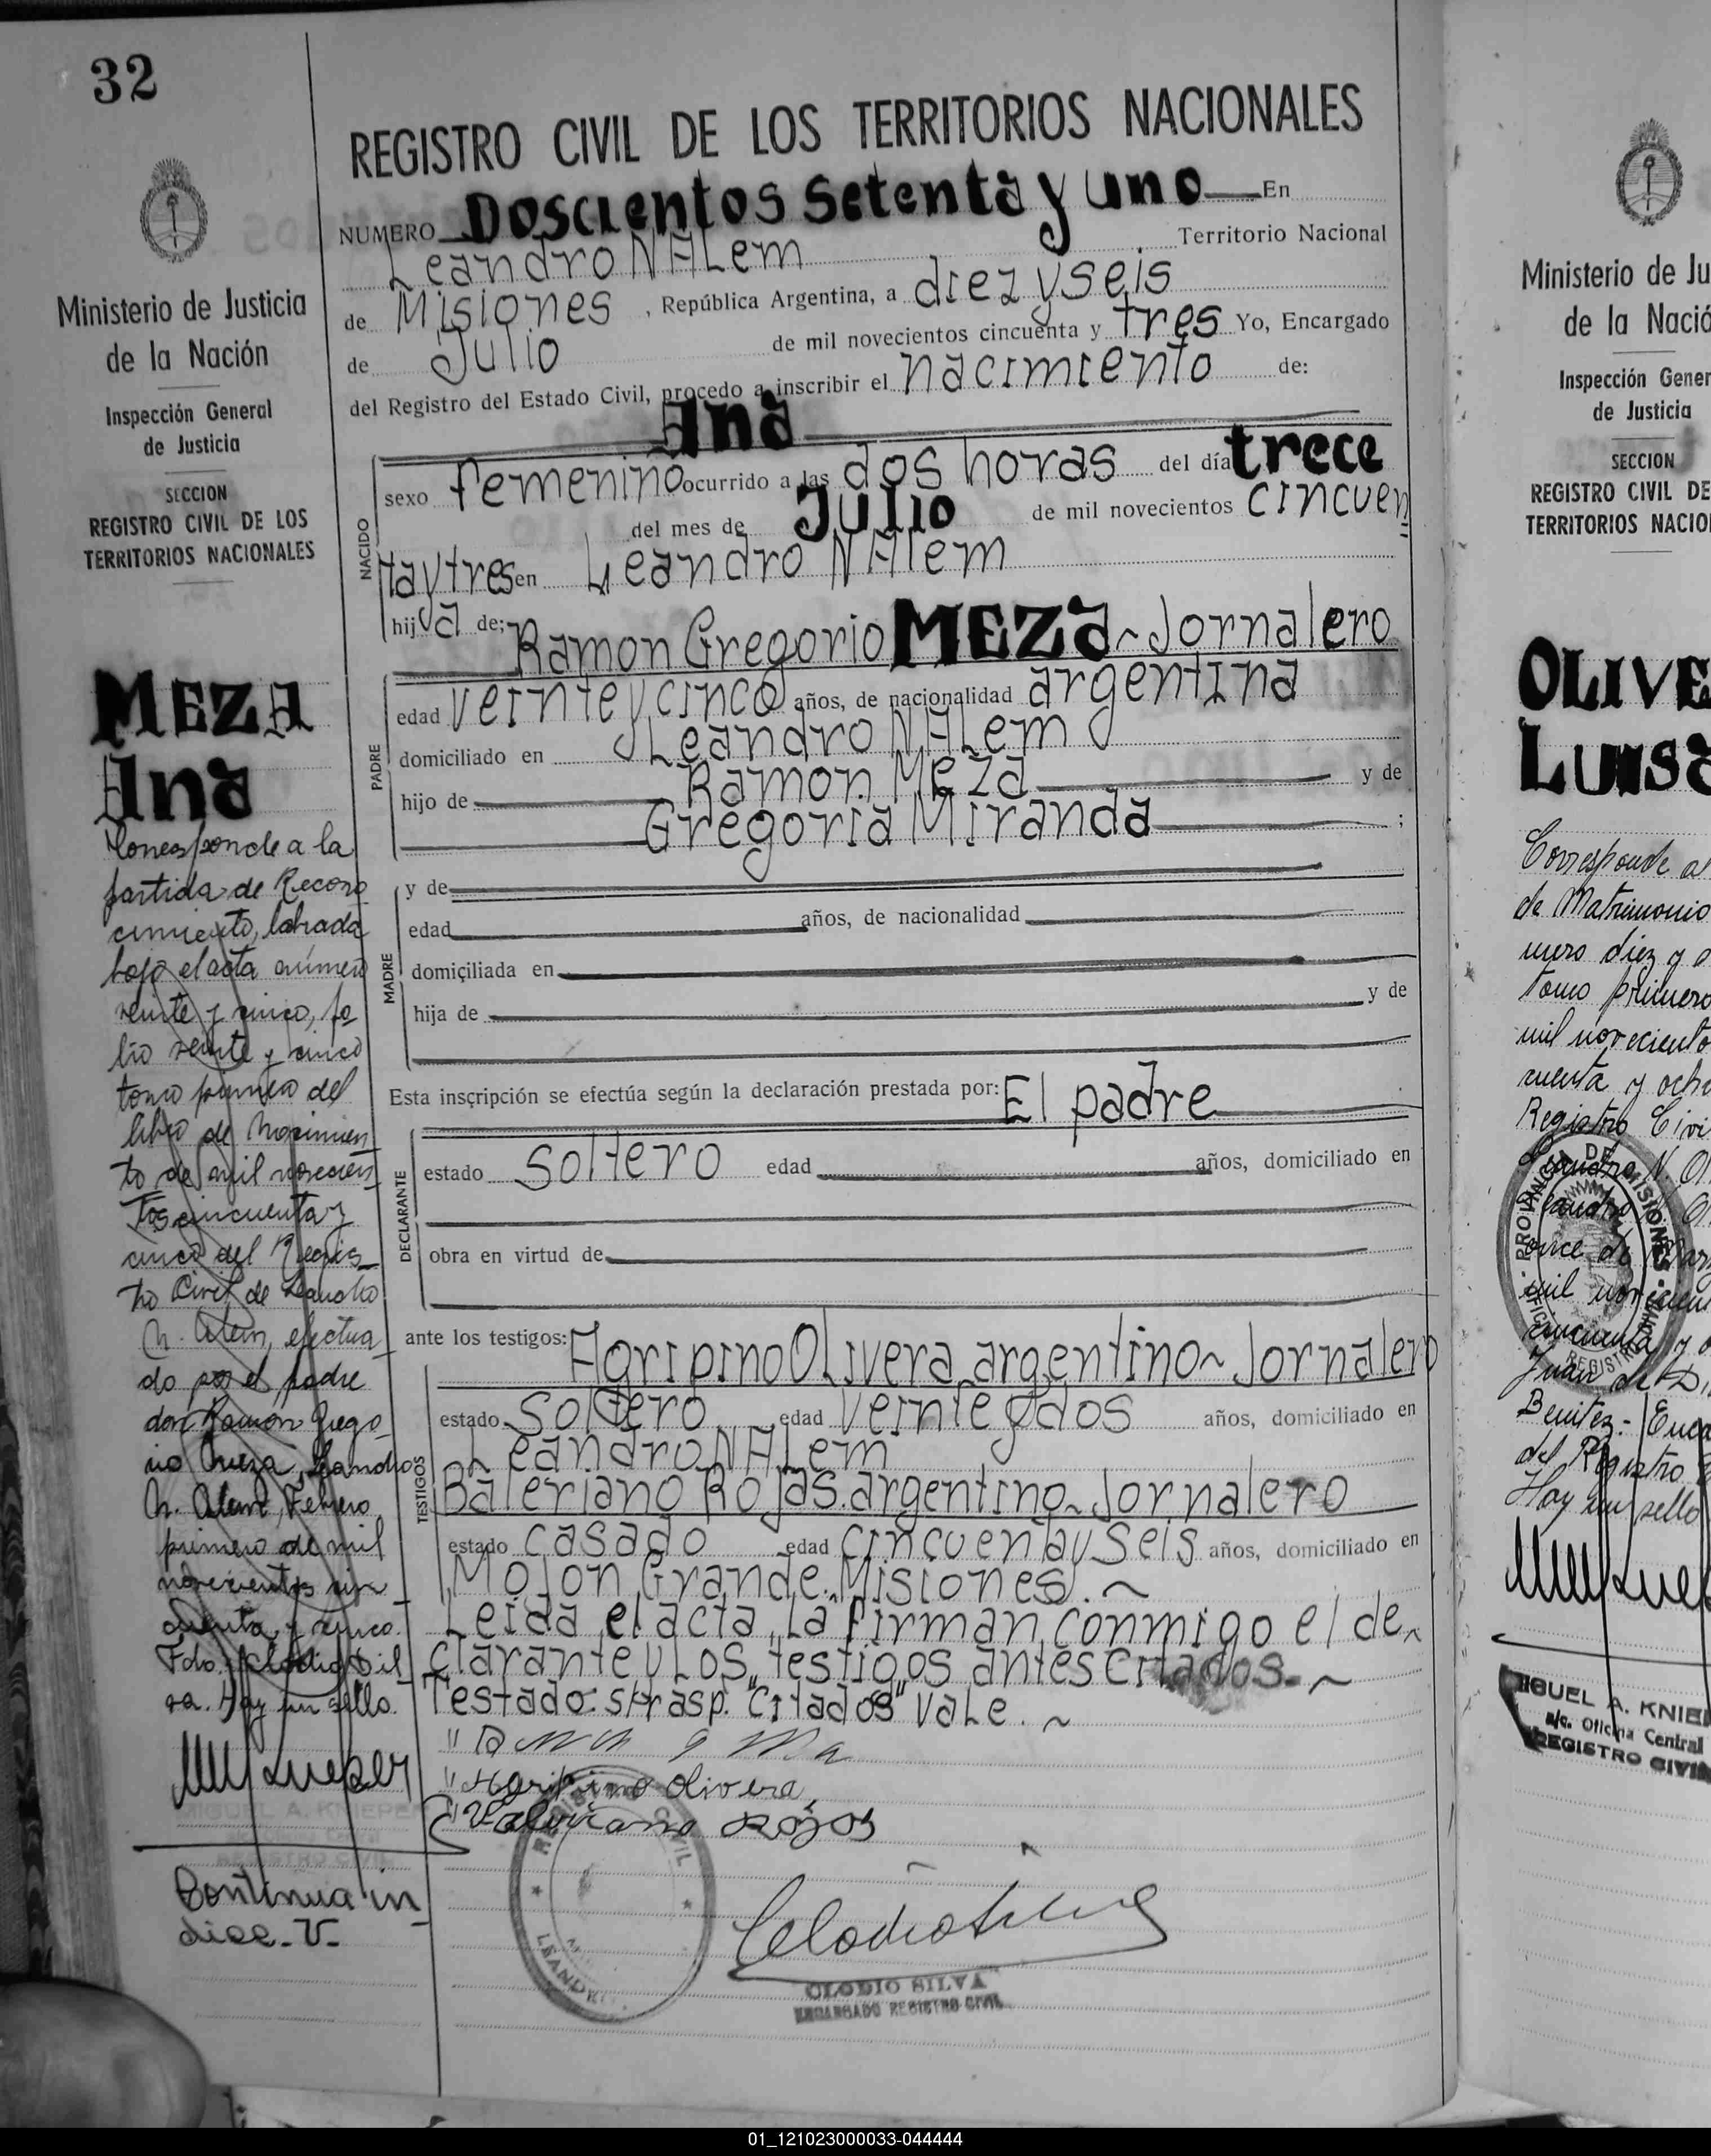 32
REGISTRO CIVIL DE LOS TERRITORIOS NACIONALES
NUMERO Doscientos Setenta y uno En
Leandro N ALem Territorio Nacional
de Misiones, República Argentina, a diez y seis
de Julio de mil novecientos cincuenta y tres Yo, Encargado
del Registro del Estado Civil, procedo a inscribir el nacimiento de:
Ana
NACIDO
sexo femenino ocurrido a las dos horas del día trece
del mes de Julio de mil novecientos cincuen
ta y tres en Leandro N ALem
hija de; Ramon Gregorio MEZa ~ Jornalero
PADRE
edad veinte y cinco años, de nacionalidad argentina
domiciliado en Leandro N ALem
hijo de Ramon Meza y de
Gregoria Miranda ;
MADRE
y de
edad años, de nacionalidad
domiciliada en
hija de y de
Esta inscripción se efectúa según la declaración prestada por: El padre
DECLARANTE
estado soltero edad años, domiciliado en
obra en virtud de
ante los testigos: Agripino Olivera argentino ~ Jornalero
TESTIGOS
estado soltero edad veinte y dos años, domiciliado en
Leandro N ALem
Baleriano Rojas. argentino ~ Jornalero
estado casado edad cincuenta y seis años, domiciliado en
Mojon Grande. Misiones. ~
Leida el acta, la firman conmigo el de
clarante y Los testigos antes citados. ~
Testado: s/rasp. "citados" vale. ~
"Agripino olivera,
"Valeriano Rojas
REGISTRO CIVIL
LEANDR
CLODIO SILVA
ENCARGADO REGISTRO CIVIL
Ministerio de Justicia
de la Nación
Inspección General
de Justicia
SECCION
REGISTRO CIVIL DE LOS
TERRITORIOS NACIONALES
MEZA
Ana
Corresponde a la
partida de Recono
cimiento, labrada
bajo el acta número
veinte y cinco, fo
lio veinte y cinco
tomo primero del
libro de Nacimien
to de mil novecien
tos cincuenta y
cinco del Regis
tro Civil de Leandro
N. Alem, efectua
do por el padre
don Ramon Grego
rio Meza, Leandro
N. Alem, Febrero
primero de mil
novecientos cin
cuenta y cinco.
Fdo. Clodio Sil
va. Hay un sello.
MIGUEL A. KNIEPER
REGISTRO CIVIL
Continua in
dice - V -
Ministerio de Ju
de la Nació
Inspección Gener
de Justicia
SECCION
REGISTRO CIVIL DE
TERRITORIOS NACIO
OLIVE
LUISa
Corresponde al
de Matrimonio
mero diez y o
tomo primero
mil noveciento
cuenta y ocho
Registro Civi
Leandro N. Al
Leandro N. Al
once de Marz
mil novecien
cincuenta y o
Juan de Di
Benitez - Enca
del Registro
Hay un sello
PROVINCIA DE MISIONES
MIGUEL A. KNIEP
a/c. Oficina Central
REGISTRO CIVIL
01_121023000033-044444